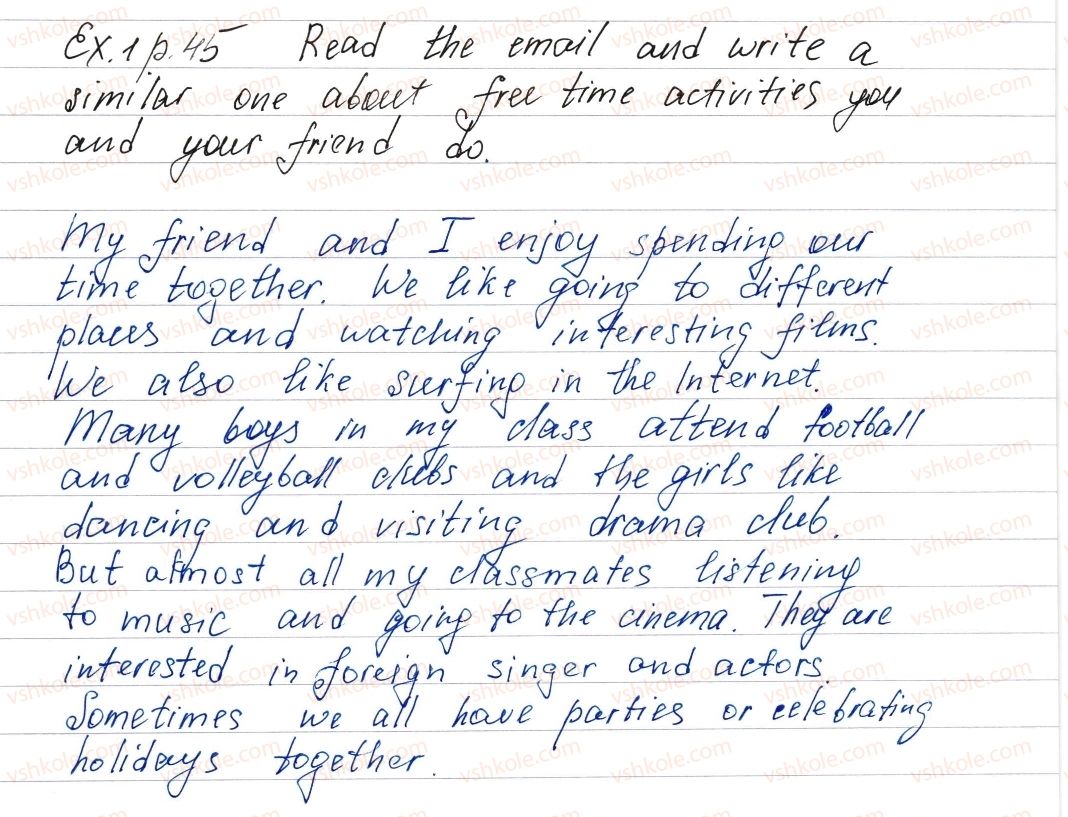 Ex.1 p.45 Read the email and write a
similar one about free time activities you
and your friend do.
My friend and I enjoy spending our
time together. We like going to different
places and watching interesting films.
We also like surfing in the Internet.
Many boys in my class attend football
and volleyball clubs and the girls like
dancing and visiting drama club.
But almost all my classmates listening
to music and going to the cinema. They are
interested in foreign singer and actors.
Sometimes we all have parties or celebrating
holidays together.